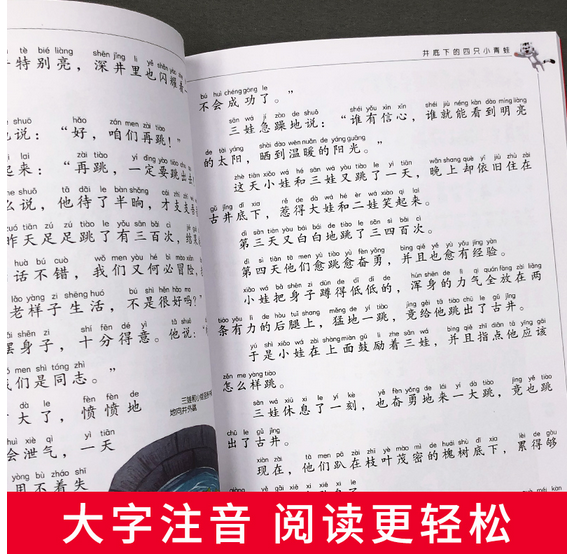 tè bié liàng shēn jǐng lǐ yě shǎn
特别亮，深井里也闪耀着
hǎo zán men zài tiào
说：“好，咱们再跳！”
zài tiào yí dìng yào tiào
起来：“再跳，一定要跳出
tā dāi le bàn shǎng cái zhī zhī
么说，他待了半晌，才支支
zuó tiān zú zú tiào le yǒu sān bǎi cì jié
昨天足足跳了有三百次，结
huà bú cuò wǒ men yòu hé bì mào xiǎn
话不错，我们又何必冒险，
lǎo yàng zi shēng huó bú shì hěn hǎo ma
老样子生活，不是很好吗？
bǎi shēn zi shí fēn dé yì tā shuō
摆身子，十分得意。他说：
们是同志。”
大了，愤愤地
huì xiè qì yì tiān
会泄气，一天
yòng bù zháo shī
用不着失
三娃和小娃坚持
地向井外跳
井底下的四只小青蛙
bú huì chéng gōng le
不会成功了。”
sān wá jí zào de shuō shéi yǒu xìn xīn shéi jiù néng kàn dào míng liàng
三娃急躁地说：“谁有信心，谁就能看到明亮
de tài yáng shài dào wēn nuǎn de yáng guāng
的太阳，晒到温暖的阳光。”
zhè tiān xiǎo wá hé sān wá yòu tiào le yì tiān wǎn shang què yī jiù zhù zài
这天小娃和三娃又跳了一天，晚上却依旧住在
gǔ jǐng dǐ xià rě dé dà wá hé èr wá xiào qǐ lai
古井底下，惹得大娃和二娃笑起来。
dì sān tiān yòu bái bái de tiào le sān sì bǎi cì
第三天又白白地跳了三四百次。
dì sì tiān tā men yù tiào yù fèn yǒng bìng qiě yě yù yǒu jīng yàn
第四天他们愈跳愈奋勇，并且也愈有经验。
xiǎo wá bǎ shēn zi dūn de dī dī de hún shēn de lì qì quán fàng zài liǎng
小娃把身子蹲得低低的，浑身的力气全放在两
tiáo yǒu lì de hòu tuǐ shang měng de yí tiào jìng gěi tā tiào chū le gǔ jǐng
条有力的后腿上，猛地一跳，竟给他跳出了古井。
yú shì xiǎo wá zài shàng miàn gǔ lì zhe sān wá bìng qiě zhǐ diǎn tā yīng gāi
于是小娃在上面鼓励着三娃，并且指点他应该
zěn me yàng tiào
怎么样跳。
sān wá xiū xi le yí kè yě fèn yǒng de lái yí dà tiào jìng yě tiào
三娃休息了一刻，也奋勇地来一大跳，竟也跳
chū le gǔ jǐng
出了古井。
xiàn zài tā men pā zài zhī yè mào mì de huái shù dǐ xià lèi de gòu
现在，他们趴在枝叶茂密的槐树底下，累得够
大字注音 阅读更轻松